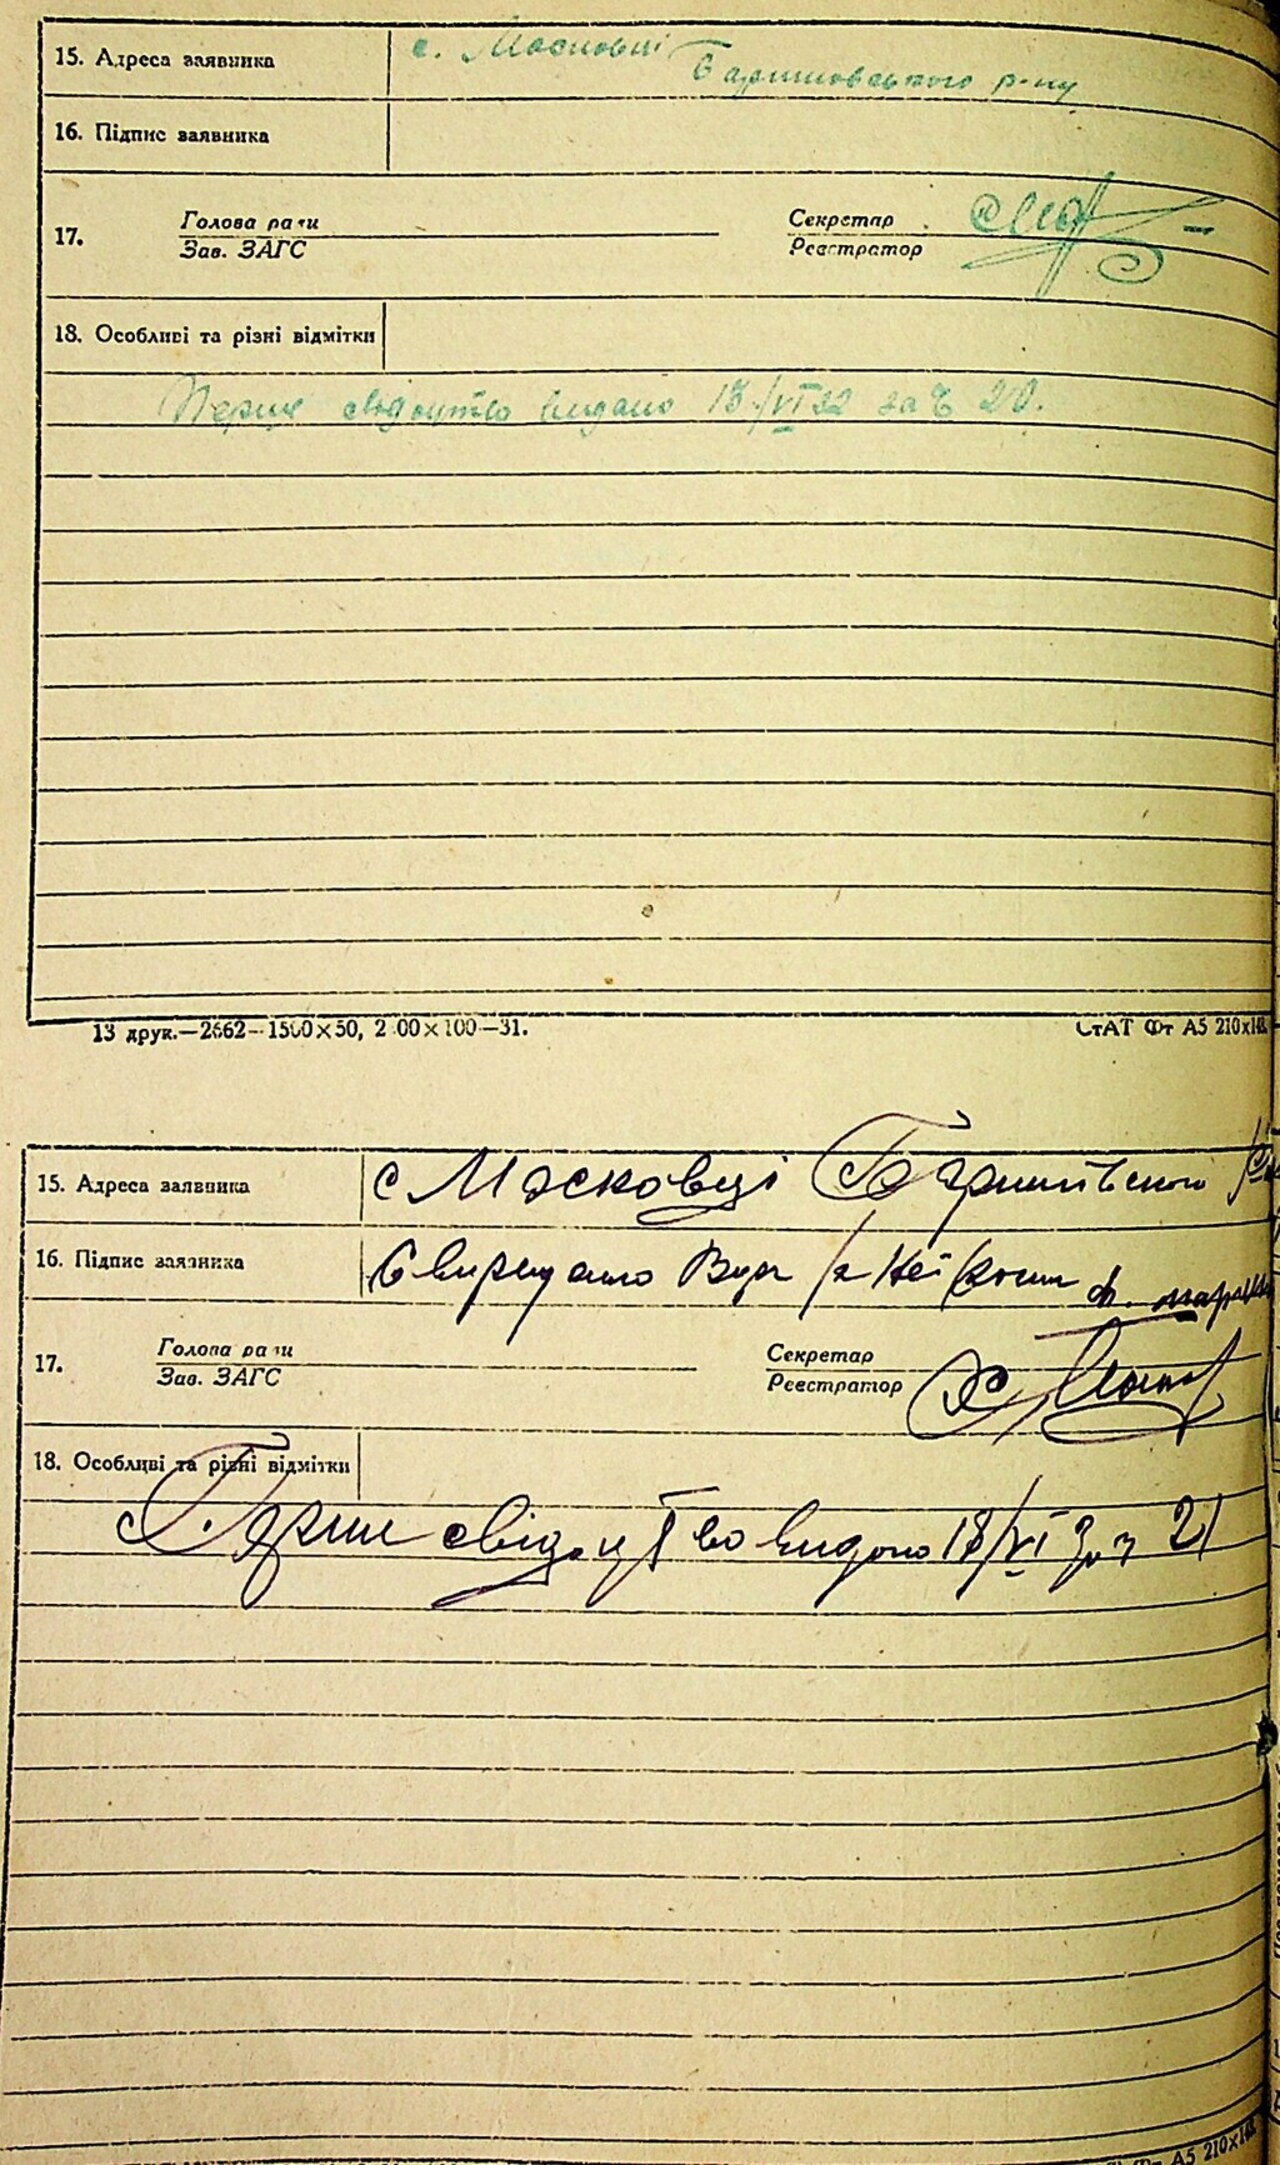 15. Адреса заявника с. Масковці
Баришовського р-ну
16. Підпис заявника
17. Голова ради Секретар
Зав. ЗАГС Реєстратор
18. Особливі та різні відмітки
Перше свідоцтво видано 18/VI 32 за № 20.
13 друк.—2662—1500×50, 2 00×100—31. СтАТ Фт А5 210х148
15. Адреса заявника с Масковці Баришівского
16. Підпис заявника
17. Голова ради Секретар
Зав. ЗАГС Реєстратор
18. Особливі та різні відмітки
Перше свідоцтво видано 18/VI за № 21
А5 210х148